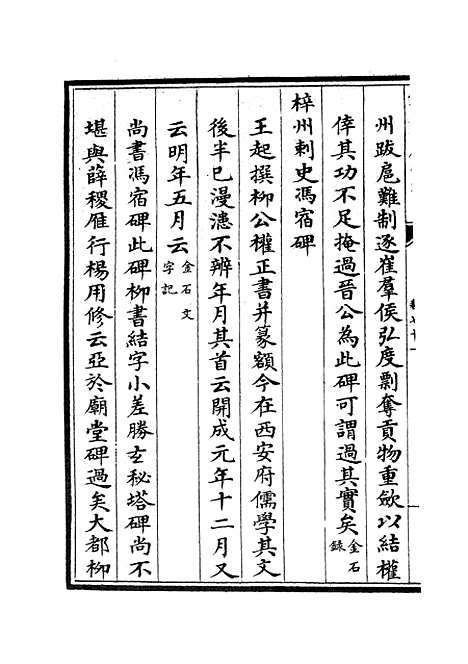 州跋扈難制逐崔羣侯弘度剽奪貢物重斂以結權
倖其功不足掩過晉公為此碑可謂過其實矣金石
錄
梓州刺史馮宿碑
王起撰柳公權正書并篆額今在西安府儒學其文
後半已漫漶不辨年月其首云開成元年十二月又
云明年五月云金石文
字記
尚書馮宿碑此碑柳書結字小差勝玄秘塔碑尚不
堪與薛稷雁行楊用修云亞於廟堂碑過矣大都柳